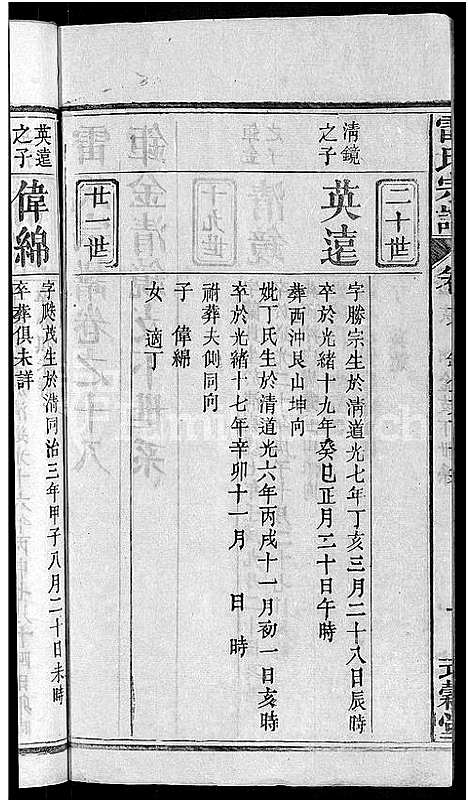 雷氏宗譜
二十世
清鏡之子
英遠
字勝宗生於清道光七年丁亥三月二十八日辰時
卒於光緒十九年癸巳正月二十日午時
葬西沖艮山坤向
妣丁氏生於清道光六年丙戌十一月初一日亥時
卒於光緒十七年辛卯十一月 日 時
祔葬夫側同向
子 偉綿
女 適丁
廿一世
英遠之子
偉綿
字颺茂生於清同治三年甲子八月二十日未時
卒葬俱未詳